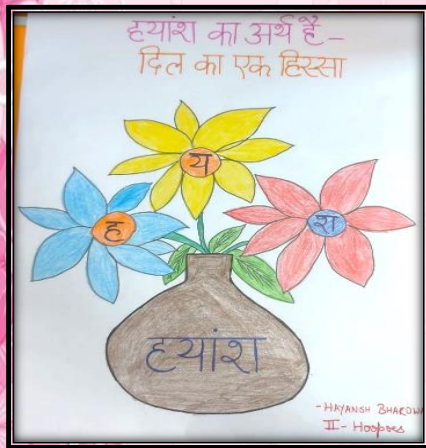 हयांश का अर्थ है -
दिल का एक हिस्सा
य
ह
श
हयांश
- HAYANSH
II - Hoopoes